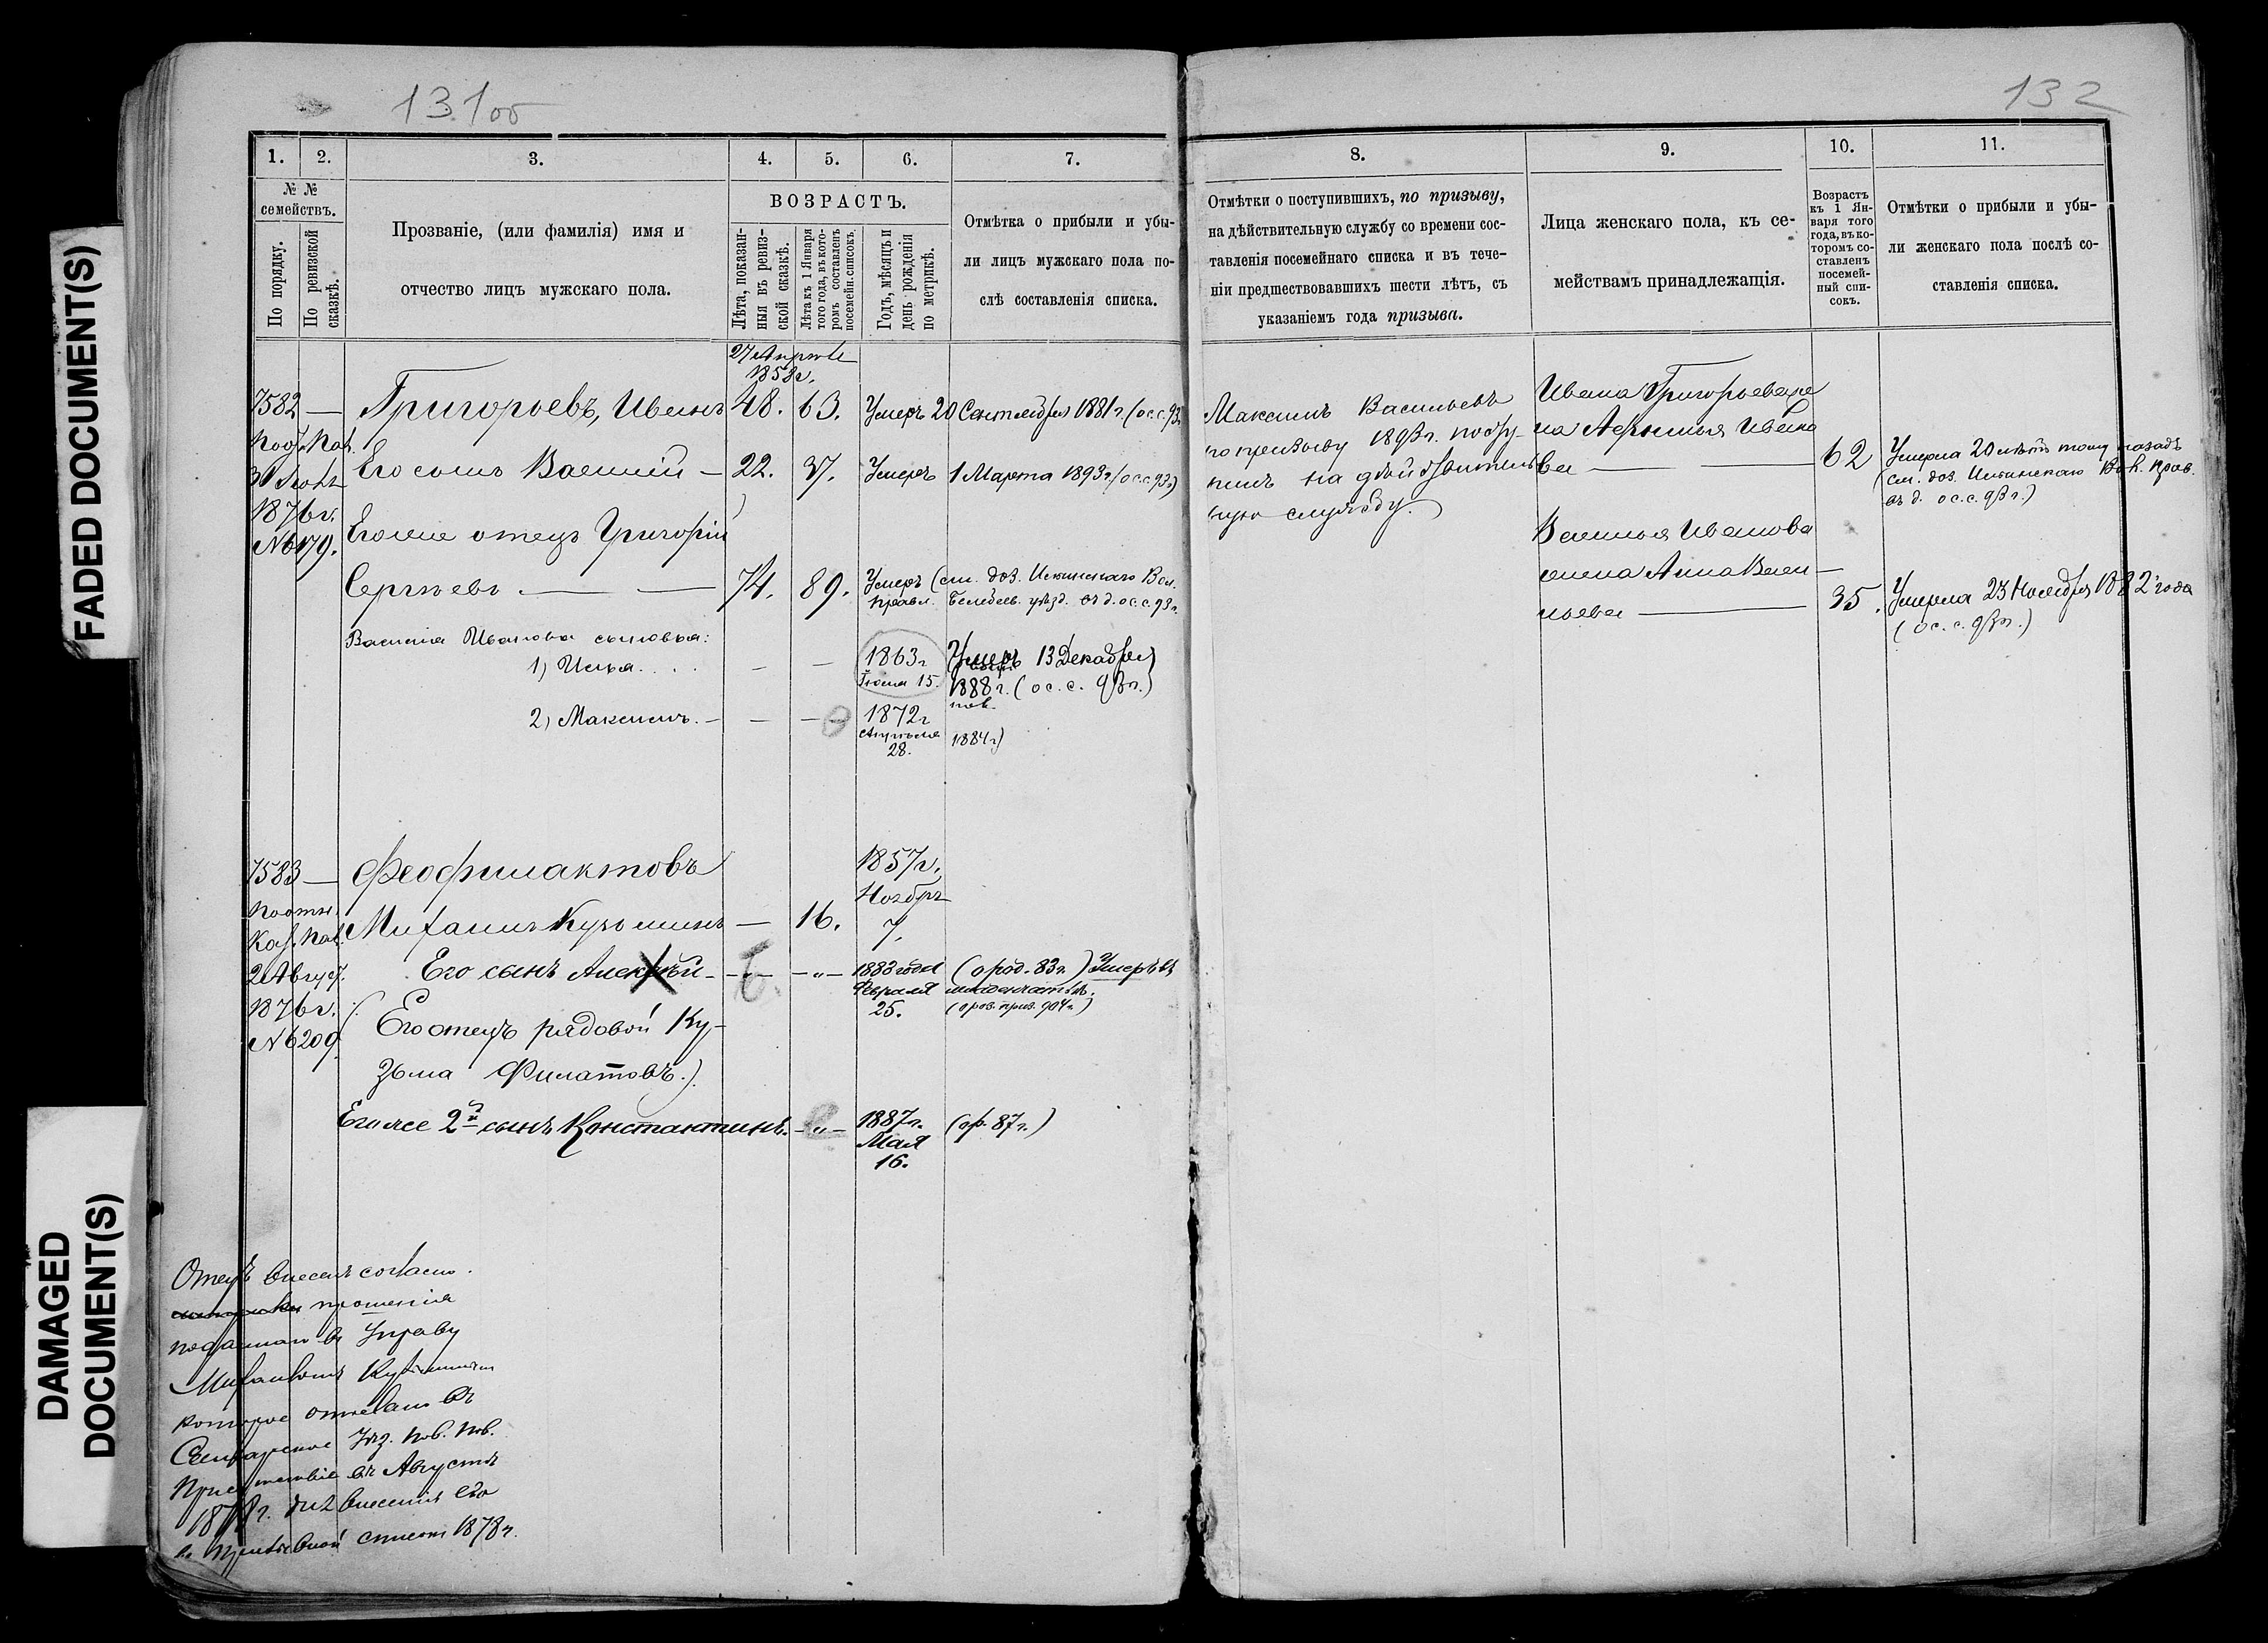 FADED DOCUMENT(S)
DAMAGED
DOCUMENT(S)
131об
132
1.
2.
3.
4.
5.
6.
7.
№ №
семействъ.
По порядку.
По ревизской
сказкѣ.
Прозваніе, (или фамилія) имя и
отчество лицъ мужскаго пола.
ВОЗРАСТЪ.
Лѣта, показан-
ныя въ ревиз-
ской сказкѣ.
Лѣта къ 1 Января
того года, въ кото-
ромъ составленъ
посемейн. списокъ.
Годъ, мѣсяцъ и
день рожденія
по метрикѣ.
Отмѣтка о прибыли и убы-
ли лицъ мужскаго пола по-
слѣ составленія списка.
27 Апрѣля
1858г.
7582 — Григорьевъ, Иванъ 48. 63. Умеръ 20 Сентября 1881 г. (о с. с. 93
Его сынъ Василій — 22. 37. Умеръ 1 Марта 1893 г. (о с. с. 93 г.)
1876г.
№ 6179.
Его же отецъ Григорій
Сергѣевъ — — 74. 89. Умеръ (см. доз. Вол.
правл. Белебеев. уѣзд. въ д. о с. с. 93 г.
Василія Иванова сыновья:
1) Илья. . . — — 1863г Умеръ 13 Декабря
Іюля 15. 1888 г. (о с. с. 93 г.)
2) Максимъ. — — — 1872г
Апрѣля
28.
1884 г)
7583 — Феофилактовъ 1857г.
Ноября
Михаилъ Кузьминъ — 16. 7.
2 Август.
1876г.
№ 6209
Его сынъ Алексѣй - — — „ — 1883 года (о род. 83 г.) Умеръ въ
Февраля младенчествѣ.
25. (пров. приз. 904 г.)
(Его отецъ рядовой Ку-
зьма Филатовъ.).
Его же 2й сынъ Константинъ. — „ — 1887г. (ор. 87 г.)
Мая
16.
Отецъ внесенъ согласно
прошенія
поданнаго въ Управу
Михаиломъ Кузьминымъ
которое отослано въ
Самарское Уѣз. по В. Пов.
Присутствіе въ Августѣ
1878 г. для внесенія его
въ призывной списокъ 1878 г.
8.
9.
10.
11.
Отмѣтки о поступившихъ, по призыву,
на дѣйствительную службу со времени сос-
тавленія посемейнаго списка и въ тече-
ніи предшествовавшихъ шести лѣтъ, съ
указаніемъ года призыва.
Лица женскаго пола, къ се-
мействамъ принадлежащія.
Возрастъ
къ 1 Ян-
варя того
года, въ ко-
торомъ со-
ставленъ
посемей-
ный спи-
сокъ.
Отмѣтки о прибыли и убы-
ли женскаго пола послѣ со-
ставленія списка.
Максимъ Васильевъ
по призыву 1893 г. посту-
пилъ на дѣйствитель-
ную службу.
Ивана Григорьева же-
на Афимья Ивано
ва — — 62
Умерла 20 лѣтъ тому назадъ
(см. доз. Вол. прав.
въ д. о с. с. 93 г.)
Василья Иванова
жена Анна Васи —
льева — 35.
Умерла 23 Ноября 1882 года
(о с. с. 93 г.)